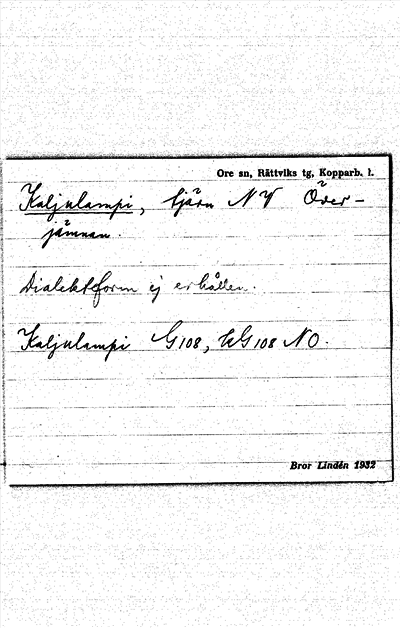 Ore sn, Rättviks tg, Kopparb. l.
Kaljulampi, tjärn NV Över-
jämnan.
Dialektform ej erhållen.
Kaljulampi G108, UG108 NO.
Bror Lindén 1932